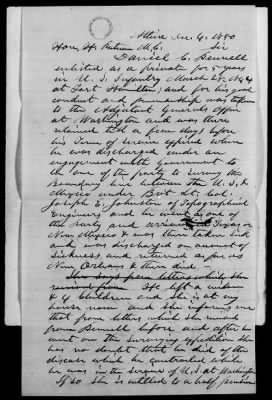 Attica Dec. 9. 1850
Hon. H. Putnam M.C. Sir
Daniel C. Bennell
enlisted as a private for 5 years
in U.S. Infantry March 28, 1844
at Fort Hamilton, and for his good
conduct and penmanship was taken
to the Adjutant Generals Office
at Washington and was there
retained till a few days before
his Term of service expired when
he was discharged under an
engagement with government to
be one of the party to survey the
Boundary line between the U.S. &
Mexico under Brvt. Lt. Col.
Joseph E. Johnston of Topographical
Engineers and he went as one of
the party and arrived at Texas or
New Mexico & was there taken sick
and was discharged on account of
Sickness and returned as far as
New Orleans & there died
She says from letters which she
received from He left a widow
& 4 children and she is at my
house now and she informs me
that from letters which she received
from Bennell before and after he
went on the surveying expedition she
has no doubt that he died of the
disease which he contracted while
he was in the service of U.S. at Washington
If so she is entitled to a half pension